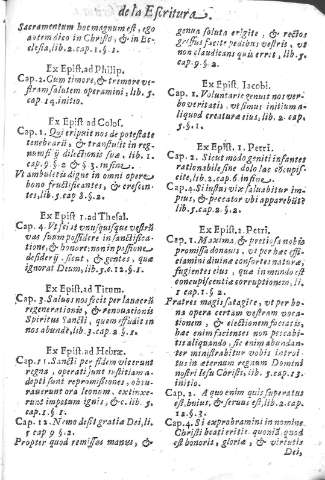 de la Escritura.
Sacramentum hoc magnum est, ego
autem dico in Christo, & in Ec-
clesia, lib. 2. cap. 1. §. 1.
Ex Epist. ad Philip.
Cap. 2. Cum timore, & tremore ve-
stram salutem operamini, lib. 5.
cap. 14. initio.
Ex Epist. ad Colos.
Cap. 1. Qui eripuit nos de potestate
tenebrarū, & transtulit in reg-
num filij dilectionis suæ, lib. 1.
cap. 9. §. 2. & §. 3. in fine.
Vt ambuletis digne in omni opere
bono fructificantes, & crescen-
tes, lib. 5. cap. 8. §. 2.
Ex Epist. 1. ad Thesal.
Cap. 4. Vt sciat vnusquisque vestrū
vas suum possidere in sanctifica-
tione, & honore: non in passione
desiderij, sicut, & gentes, quæ
ignorat Deum, lib. 3. c. 12. §. 1.
Ex Epist. ad Titum.
Cap. 3. Saluos nos fecit per lauacrū
regenerationis, & renouationis
Spiritus Sancti, quem effudit in
nos abundè, lib. 3. cap. 1. §.
Ex Epist. ad Hebræ.
Cap. 11. Sancti per fidem vicerunt
regna, operati sunt iustitiam a-
depti sunt repromissiones, obtu-
rauerunt ora leonum, extinxe-
runt impetum ignis, & c. lib. 3.
cap. 1. §. 1.
Cap. 12. Nemo desit gratiæ Dei, li.
5. cap. 9. §. 2.
Propter quod remissas manus, &
genua soluta erigite, & rectos
gressus facite pedibus vestris, vt
non claudicans quis erret, lib. 5.
cap. 9. §. 2.
Ex Epist. Iacobi.
Cap. 1. Voluntarie genuit nos ver-
bo veritatis, vt simus initium a-
liquod creaturæ eius, lib. 2. cap.
3. §. 1.
Ex Epist. 1. Petri.
Cap. 2. Sicut modo geniti infantes
rationabile sine dolo lac cōcupis-
cite, lib. 2. cap. 6. in fine.
Cap. 4. Si iustus vix saluabitur im-
pius, & peccator vbi apparebūt
lib. 5. cap. 2. §. 2.
Ex Epist. 2. Petri.
Cap. 1. Maxima, & pretiosa nobis
promissa donauit, vt per hæc effi-
ciamini diuinæ consortes naturæ,
fugientes eius, quæ in mundo est
concupiscentiæ corruptionem, li.
1. cap. 1. §. 2.
Fratres magis satagite, vt per bo-
na opera certam vestram voca-
tionem, & electionem faciatis,
hæc enim facientes non peccabi-
tis aliquando, sic enim abundan-
ter ministrabitur vobis introi-
tus in æternum regnum Domini
nostri Iesu Christi, lib. 5. cap. 13.
initio.
Cap. 2. A quo enim quis superatus
est, huius, & seruus est, lib. 2. cap.
12. §. 3.
Cap. 4. Si exprobramini in nomine
Christi beati eritis, quoniā quod
est honoris, gloriæ, & virtutis
Dei,